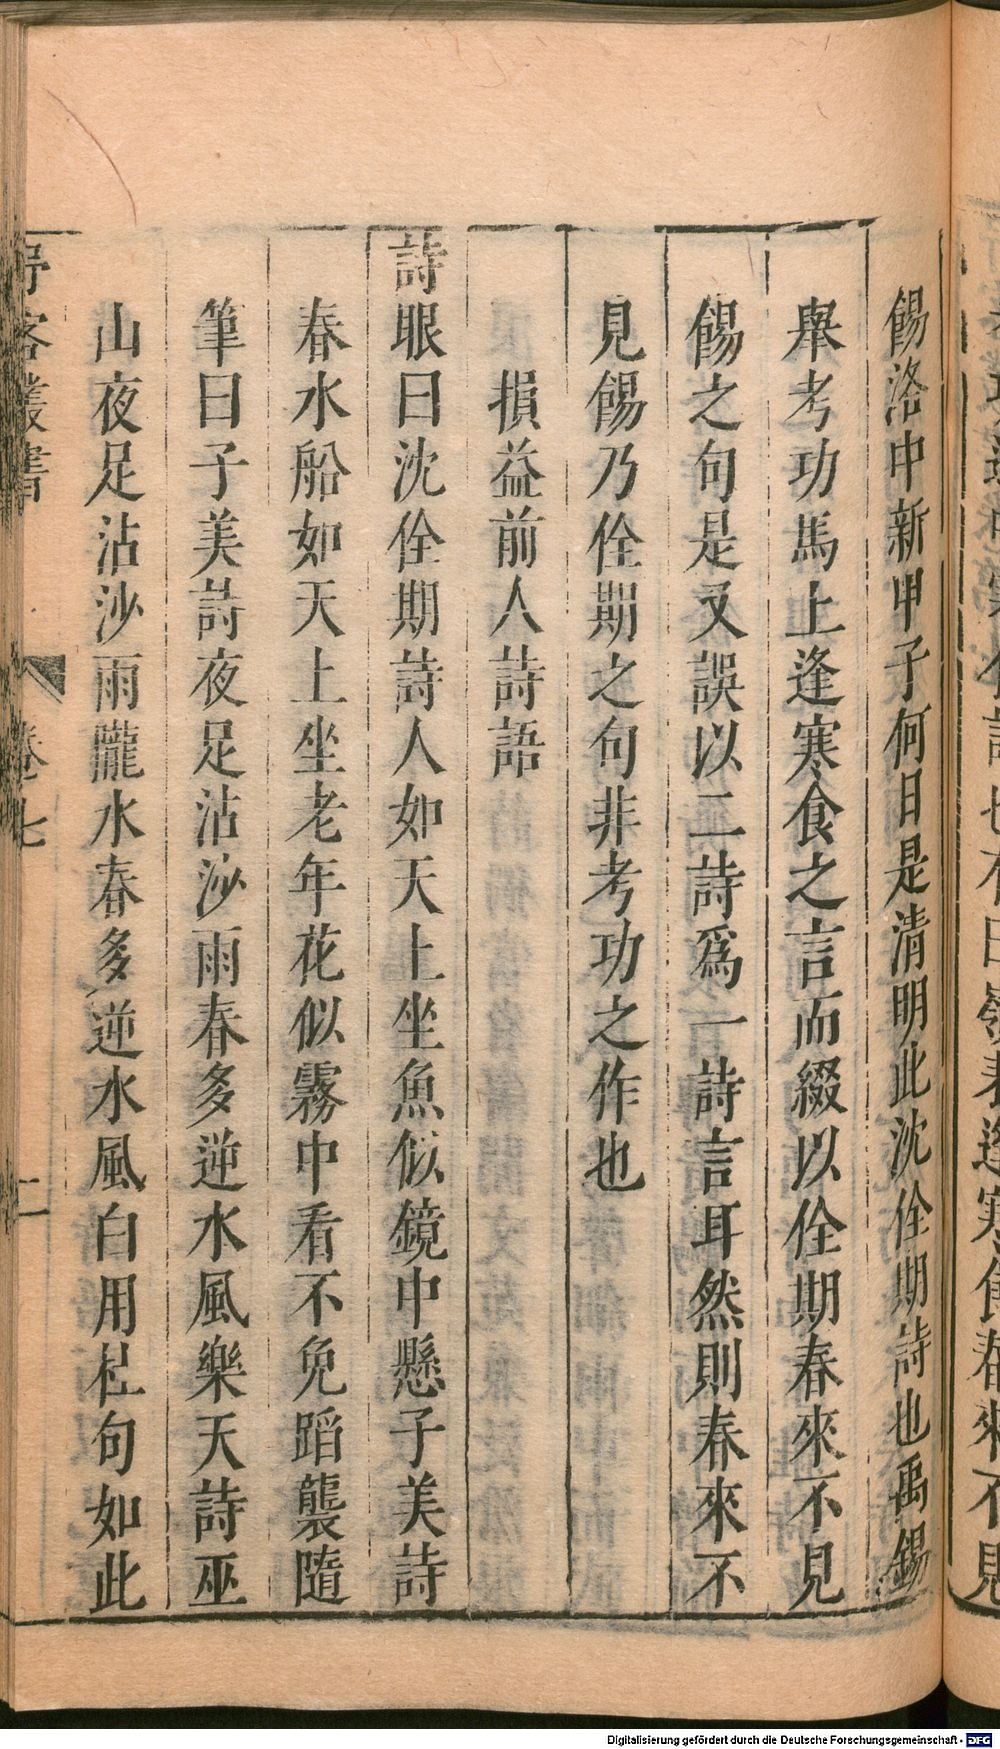 嶺表逢寒食春來不見
餳洛中新甲子何日是清明此沈佺期詩也禹錫
舉考功馬上逢寒食之言而綴以佺期春來不見
餳之句是又誤以二詩爲一詩言耳然則春來不
見餳乃佺期之句非考功之作也
損益前人詩語
詩眼曰沈佺期詩人如天上坐魚似鏡中懸子美詩
春水船如天上坐老年花似霧中看不免蹈襲隨
筆曰子美詩夜足沾沙雨春多逆水風樂天詩巫
山夜足沾沙雨隴水春多逆水風白用杜句如此
野客叢書 卷七 二
Digitalisierung gefördert durch die Deutsche Forschungsgemeinschaft - DFG